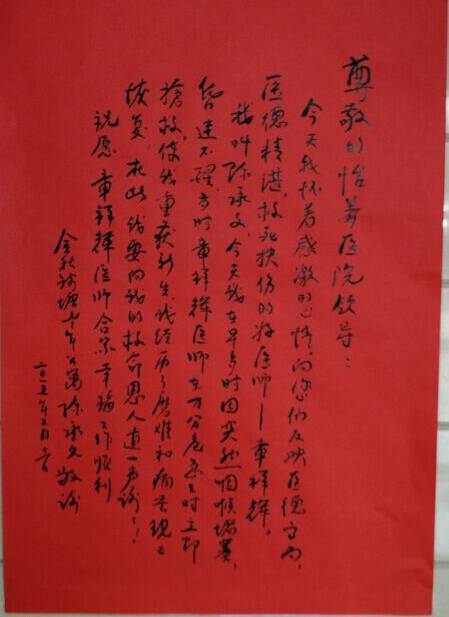 尊敬的怡养医院领导：
今天我怀着感激的心情，向您们反映医德高尚，
医德精湛，救死扶伤的好医师—章祥辉。
我叫陈承文今天我在早多时因突然咽喉堵塞，
昏迷不醒，当时章祥辉医师在万分危急之时立即
抢救，使我重获新生，我经历了磨难和病苦现已
恢复，在此我要向我的救命恩人道一声谢谢！
祝愿章祥辉医师合家幸福工作顺利
陈承文敬谢
二〇一五年五月